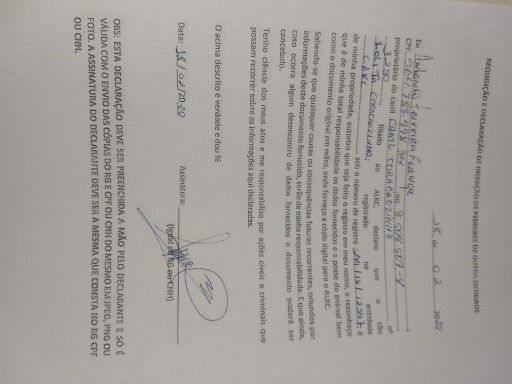 REQUISIÇÃO E DECLARAÇÃO DE INSERÇÃO DE PEDIGREE DE OUTRA ENTIDADE
18 de 02 2020
Eu
CPF nº
proprietário do canil
filiado no ALKC, declaro que o cão
registrado na entidade
sob o número de registro é
de minha propriedade, autorizo que seja feito o registro em meu nome, e reconheço
que é de minha total responsabilidade os dados fornecidos e a posse do animal bem
como o documento original em mãos, onde forneço a cópia digital para o ALKC.
Sabendo-se que quaisquer causas ou consequências futuras recorrentes, oriundos por
informações deste documento fornecido, serão de minha responsabilidade. E que ainda,
caso ocorra algum desencontro de dados fornecidos o documento poderá ser
cancelado.
Tenho ciência dos meus atos e me responsabilizo por ações cíveis e criminais que
possam recorrer sobre as informações aqui declaradas.
O acima descrito é verdade e dou fé
Data: 18/02/2020 Assinatura:
(Igual ao RG ou CNH)
OBS: ESTA DECLARAÇÃO DEVE SER PREENCHIDA A MÃO PELO DECLARANTE E SÓ É
VÁLIDA COM O ENVIO DAS CÓPIAS DO RG E CPF OU CNH DO MESMO EM JPEG, PNG OU
FOTO. A ASSINATURA DO DECLARANTE DEVE SER A MESMA QUE CONSTA NO RG CPF
OU CNH.